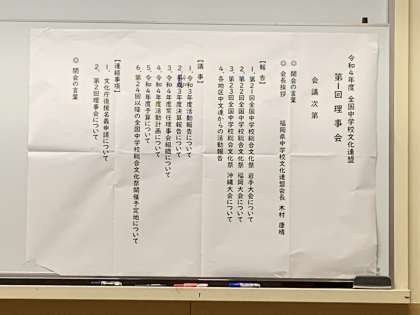 令和4年度 全国中学校文化連盟
第1回 理事会
会議次第
◎ 開会の言葉
◎ 会長挨拶 福岡県中学校文化連盟会長 木村 康晴
【報告】
1、第21回全国中学校総合文化祭 岩手大会について
2、第22回全国中学校総合文化祭 福岡大会について
3、第23回全国中学校総合文化祭 沖縄大会について
4、各地区中文連からの活動報告
【議事】
1、令和3年度活動報告について
2、令和3年度決算報告について
3、令和4年度常任理事会組織について
4、令和4年度活動計画について
5、令和4年度予算について
6、第24回以降の全国中学校総合文化祭開催予定地について
【連絡事項】
1、文化庁後援名義申請について
2、第2回理事会について
◎ 閉会の言葉